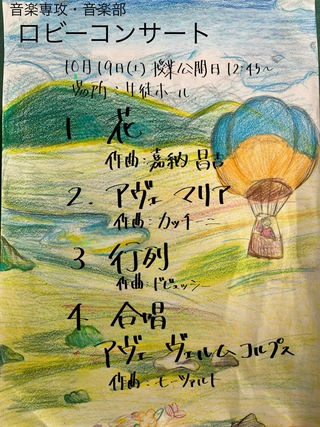 音楽専攻・音楽部
ロビーコンサート
10月19日(土) 授業公開日 12:45〜
場所:生徒ホール
1. 花
作曲:嘉納 昌吉
2. アヴェ マリア
作曲:カッチーニ
3 行列
作曲:ドビュッシー
4. 合唱
アヴェ ヴェルム コルプス
作曲:モーツァルト